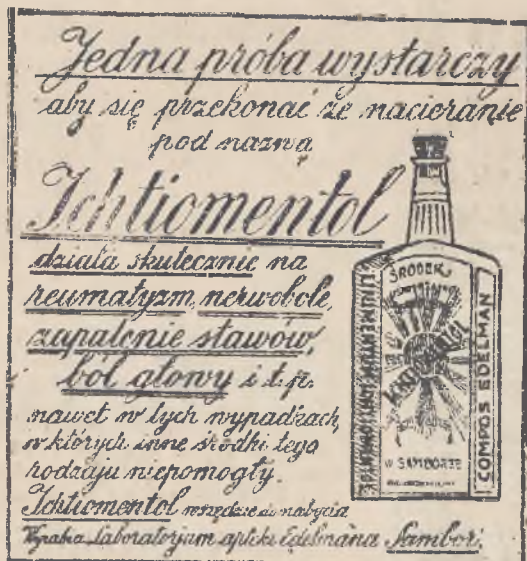 Jedna próba wystarczy
aby się przekonać że nacieranie
pod nazwą
Ichtiomentol
działa skutecznie na
reumatyzm, nerwobole,
zapalenie stawów,
ból głowy i t. p.
nawet w tych wypadkach,
w których inne środki tego
rodzaju niepomogły.
Ichtiomentol wszędzie do nabycia
Wyrabia Laboratorjum apteki Edelmana Sambor.
ŚRODEK
W SAMBORZE
COMPOS EDELMAN